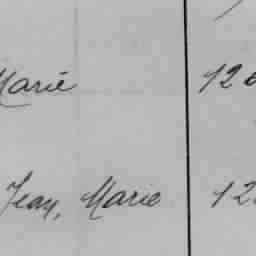 Marie 12
Jean, Marie 12